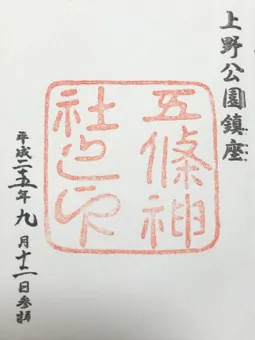 上野公園鎮座
五條神
社之印
平成二五年九月十二日参拝